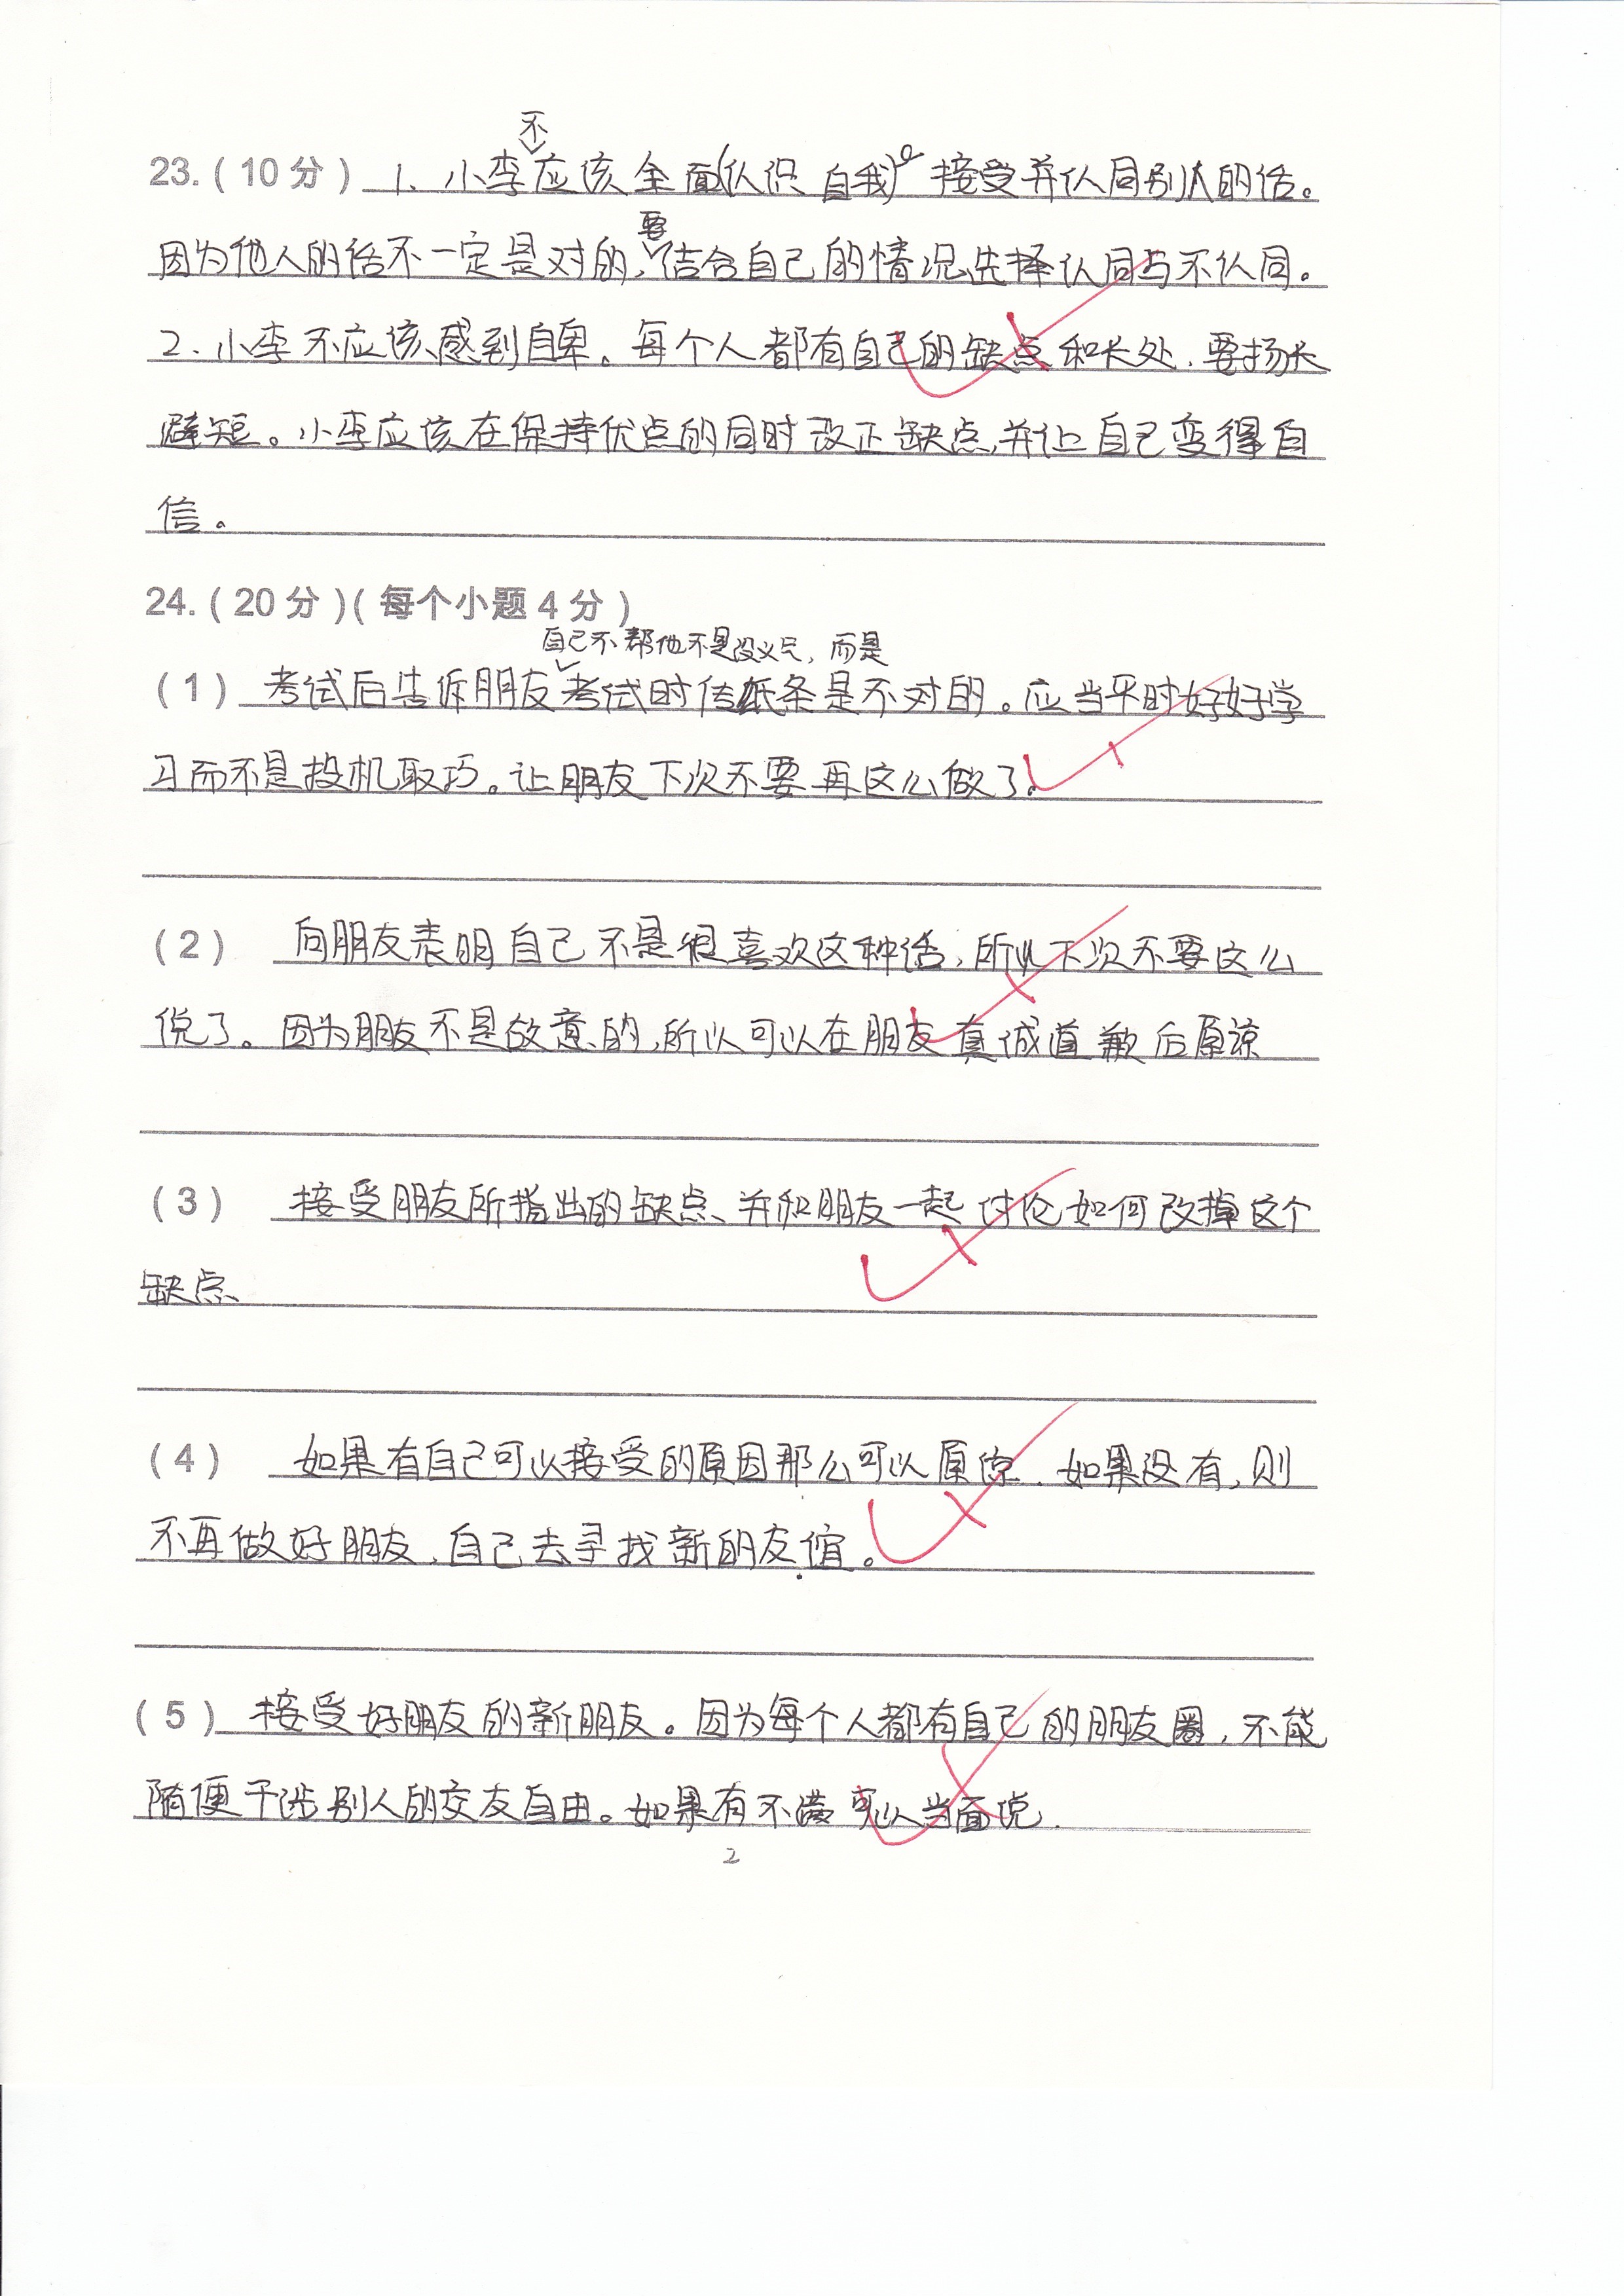 不
23.(10分) 1、小李应该全面(认识自我)接受并认同别人的话。
要
因为他人的话不一定是对的,结合自己的情况选择认同与不认同。
2、小李不应该感到自卑。每个人都有自己的缺点和长处,要扬长
避短。小李应该在保持优点的同时改正缺点,并让自己变得自
信。
24.(20分)(每个小题4分)
自己不帮他不是没义气,而是
(1)考试后告诉朋友考试时传纸条是不对的。应当平时好好学
习而不是投机取巧。让朋友下次不要再这么做了。
(2)向朋友表明自己不是很喜欢这种话,所以下次不要这么
说了。因为朋友不是故意的,所以可以在朋友真诚道歉后原谅
(3)接受朋友所指出的缺点、并和朋友一起讨论如何改掉这个
缺点、
(4)如果有自己可以接受的原因那么可以原谅.如果没有,则
不再做好朋友,自己去寻找新的友谊。
(5)接受好朋友的新朋友。因为每个人都有自己的朋友圈,不能
随便干涉别人的交友自由。如果有不满可以当面说.
2